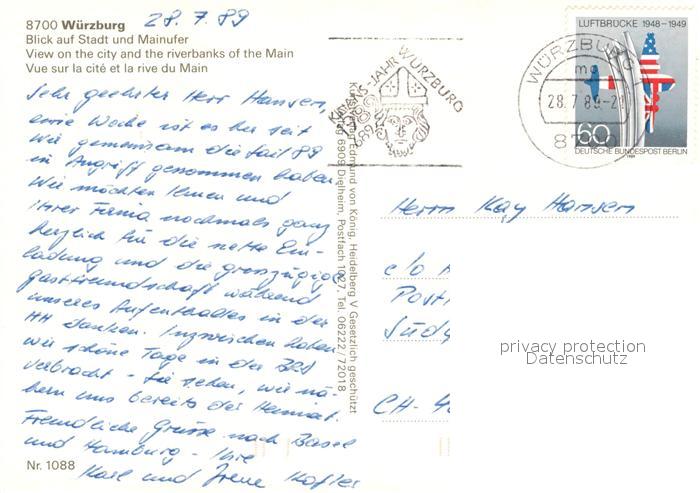 8700 Würzburg 28.7.89
Blick auf Stadt und Mainufer
View on the city and the riverbanks of the Main
Vue sur la cité et la rive du Main
Sehr geehrter Herr Hansen,
eine Woche ist es her seit
wir gemeinsam die Sail 89
in Angriff genommen haben.
Wir möchten Ihnen und
Ihrer Firma nochmals ganz
herzlich für die nette Ein-
ladung und die grosszügige
Gastfreundschaft während
unseres Aufenthaltes in der
HH danken. Inzwischen haben
wir schöne Tage in der BRD
verbracht - Sie sehen, wir nä-
hern uns bereits der Heimat.
Freundliche Grüsse nach Basel
und Hamburg - Ihre
Karl und Irene Kofler
Nr. 1088
Edmund von König, Heidelberg V Gesetzlich geschützt
6909 Dielheim, Postfach 1027, Tel. 06222/72018
KILIANS-JAHR WÜRZBURG
689
1989
WÜRZBURG
mg
28.7.89-2
8700
LUFTBRÜCKE 1948-1949
60
DEUTSCHE BUNDESPOST BERLIN
Herrn Kay Hansen
c/o
Post
Südq
CH-4
privacy protection
Datenschutz